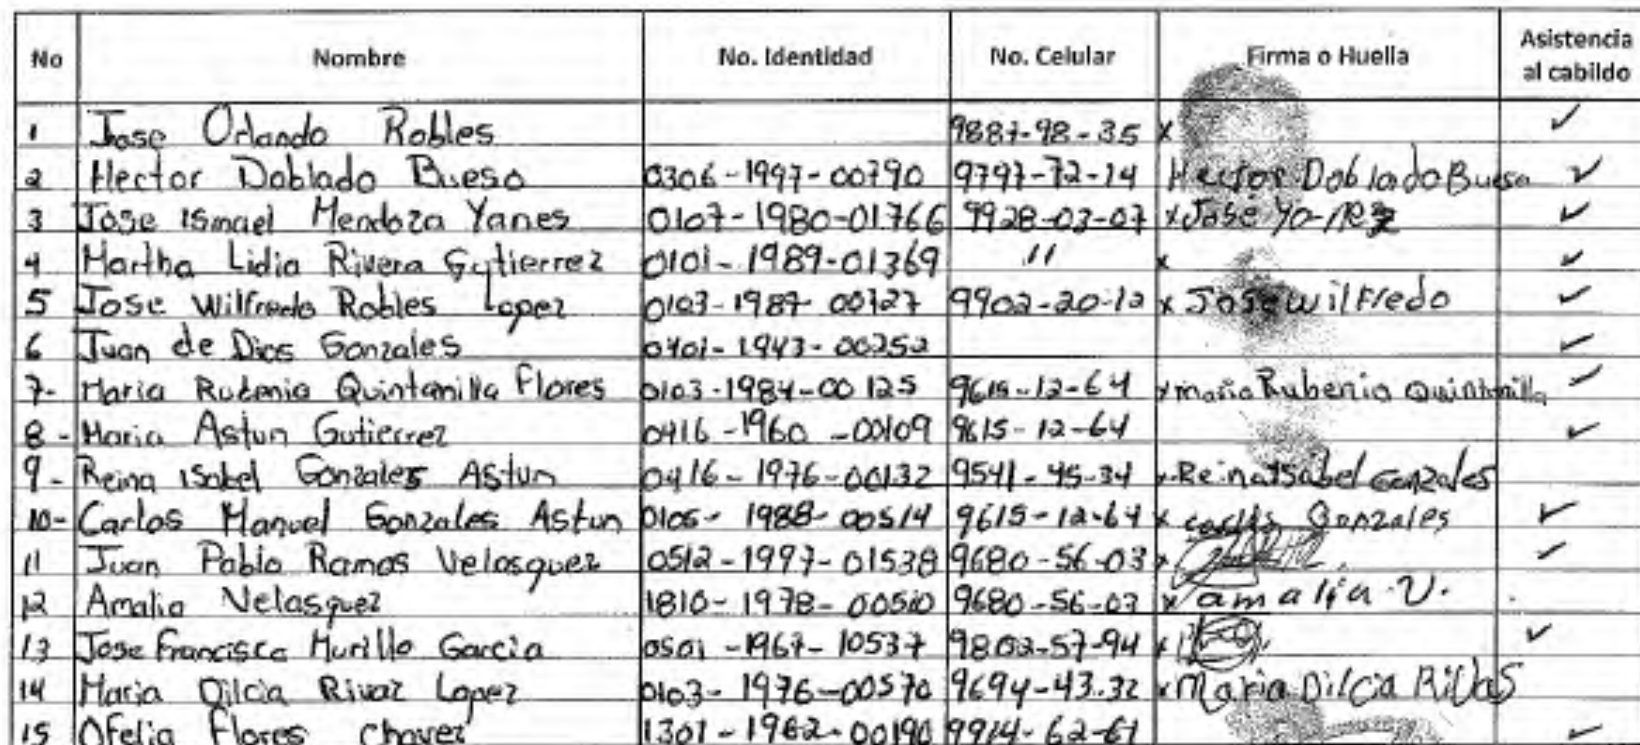 No Nombre No. Identidad No. Celular Firma o Huella Asistencia al cabildo
1 Jose Orlando Robles 9887-98-35 x ✓
2 Hector Doblado Bueso 0306-1997-00790 9797-72-14 Hector Doblado Bueso ✓
3 Jose Ismael Mendoza Yanes 0107-1980-01766 9928-03-07 x Jose ✓
4 Martha Lidia Rivera Gutierrez 0101-1989-01369 11 x ✓
5 Jose Wilfredo Robles Lopez 0103-1987-00727 9902-20-12 x Jose wilfredo ✓
6 Juan de Dios Gonzales 0401-1943-00252 ✓
7- Maria Rubenia Quintanilla Flores 0103-1984-00125 9615-12-64 x maria Rubenia Quintanilla ✓
8- Maria Astun Gutierrez 0416-1960-00109 9615-12-64 ✓
9- Reina Isabel Gonzales Astun 0416-1976-00132 9541-45-34 x Reina Isabel Gonzales
10- Carlos Manuel Gonzales Astun 0105-1988-00514 9615-12-64 x carlos Gonzales ✓
11 Juan Pablo Ramos Velasquez 0512-1997-01538 9680-56-03 x ✓
12 Amalia Velasquez 1810-1978-00510 9680-56-03 x amalia V.
13 Jose Francisco Murillo Garcia 0501-1967-10537 9802-57-94 x ✓
14 Maria Dilcia Rivaz Lopez 0103-1976-00570 9694-43-32 x Maria Dilcia RiVas
15 Ofelia Flores chavez 1301-1962-00190 9914-62-61 ✓